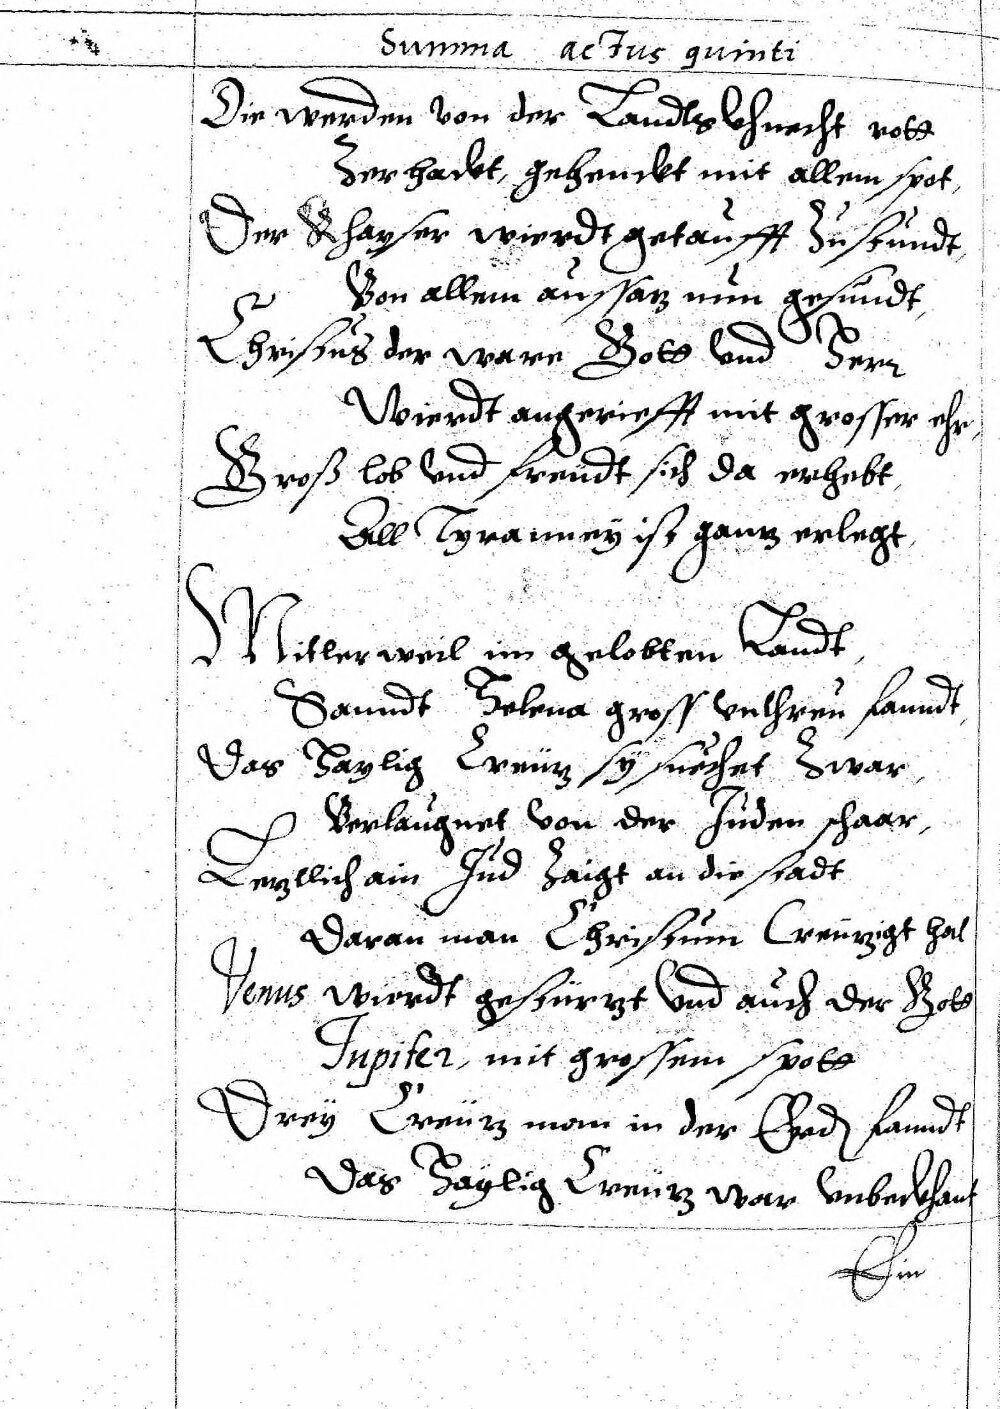 Summa actus quinti
Die werden von der Landtskhnecht rott
Zerhackt, gehenckt mit allem spot,
Der Khayser wierdt getaufft zustundt,
Von allem aussatz nun gesundt,
Christus der ware Gott vnd Herr
Wierdt angeriefft mit grosser ehr,
Groß lob vnd freudt sich da erhebt,
All Tyranney ist gantz erlegt,
Mitlerweil im gelobten Landt,
Sanndt Helena gross vnthreu fanndt,
Das Haylig Creutz sy suechet zwar,
Verlaugnet von der Juden schaar,
Letztlich ain Jud zaigt an die stadt
Daran man Christum Creutzigt hat
Venus wierdt gestürtzt vnd auch der Gott
Jupiter, mit grossem spott
Drey Creütz man in der Erd fanndt
Das Haylig Creütz war vnbeckhant
Ein